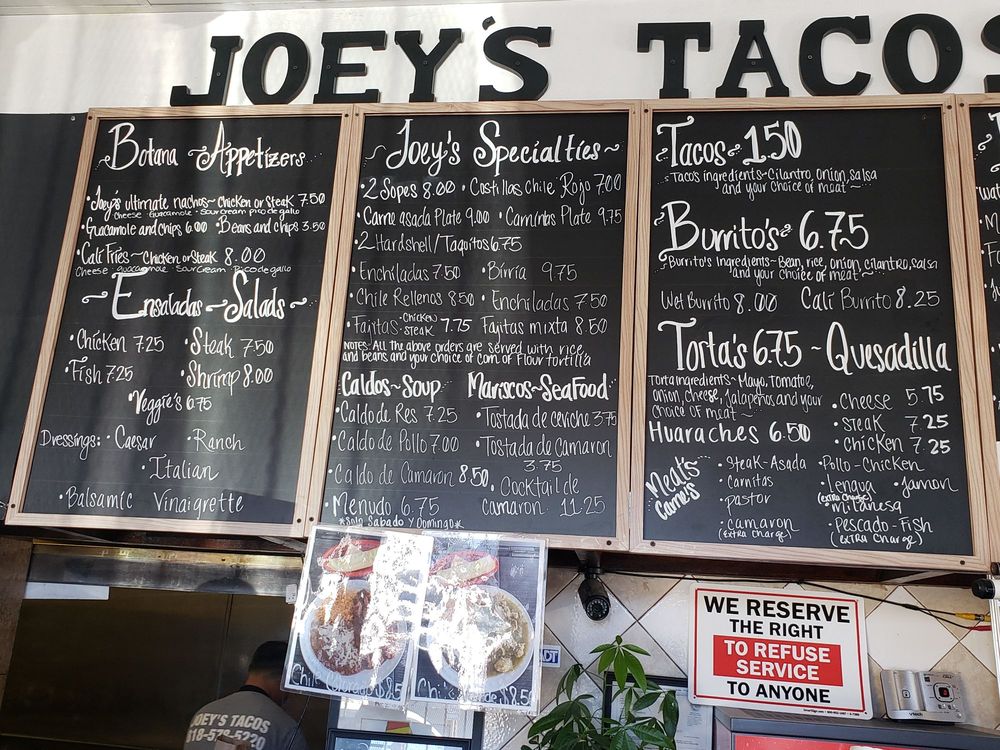 JOEY'S TACOS
Botana ~Appetizers
•Joey's ultimate nachos~Chicken or Steak 7.50
Cheese · Guacamole · Sour Cream pico de gallo
•Guacamole and Chips 6.00 •Beans and Chips 3.50
•Cali Fries ~Chicken or Steak 8.00
Cheese · guacamole · Sour Cream · Pico de gallo
~Ensaladas~Salads~
•Chicken 7.25 •Steak 7.50
•Fish 7.25 •Shrimp 8.00
•Veggie's 6.75
Dressings: •Caesar •Ranch
•Italian
•Balsamic Vinaigrette
Joey's Specialties~
•2 Sopes 8.00 •Costillas Chile Rojo 7.00
•Carne asada Plate 9.00 •Carnitas Plate 9.75
•2 Hardshell/Taquitos 6.75
•Enchiladas 7.50 •Birria 9.75
•Chile Rellenos 8.50 •Enchiladas 7.50
•Fajitas •Chicken •Steak 7.75 Fajitas mixta 8.50
NOTES: All The above orders are served with rice
and beans and your choice of corn of Flour tortilla
Caldos~Soup
•Caldo de Res 7.25
•Caldo de Pollo 7.00
•Caldo de Camaron 8.50
Menudo 6.75
*Solo Sabado y Domingo*
Mariscos~Seafood
•Tostada de ceviche 3.75
•Tostada de camaron
3.75
•Cocktail de
camaron 11.25
Tacos 1.50
Tacos ingredients~Cilantro, Onion, Salsa
and your choice of meat~
Burrito's 6.75
Burrito's Ingredients~Bean, rice, onion, cilantro, salsa
and your choice of meat~
Wet Burrito 8.00 Cali Burrito 8.25
Torta's 6.75 ~ Quesadilla
Torta ingredients~Mayo, Tomatoe,
onion, cheese, jalapeños, and your
choice of meat~
Huaraches 6.50
•Cheese 5.75
•Steak 7.25
•Chicken 7.25
Meat's
Carnes
•Steak-Asada
•Carnitas
pastor
•camaron
(extra charge)
•Pollo-Chicken
•Lengua •Jamon
(extra charge)
•Milanesa
•Pescado-Fish
(extra charge)
WE RESERVE
THE RIGHT
TO REFUSE
SERVICE
TO ANYONE
ADT
vtech
JOEY'S TACOS
818-578-5220